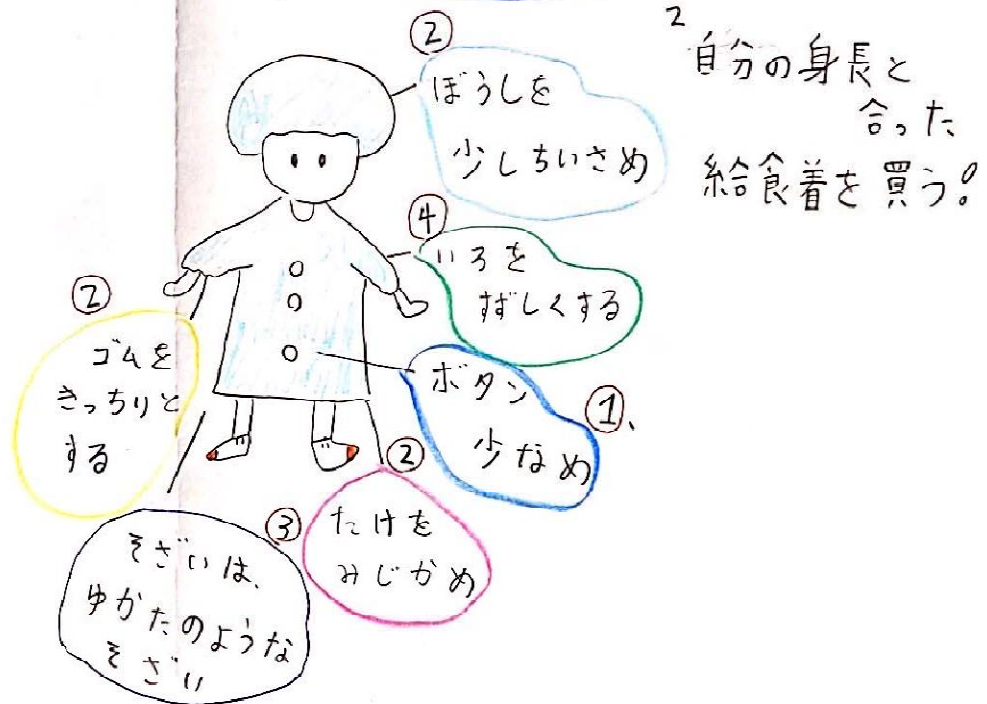 ②
ぼうしを
少しちいさめ
2
自分の身長と
合った
給食着を買う!
④
いろを
すずしくする
②
ゴムを
きっちりと
する
ボタン
少なめ
①、
②
たけを
みじかめ
③
そざいは、
ゆかたのような
そざい